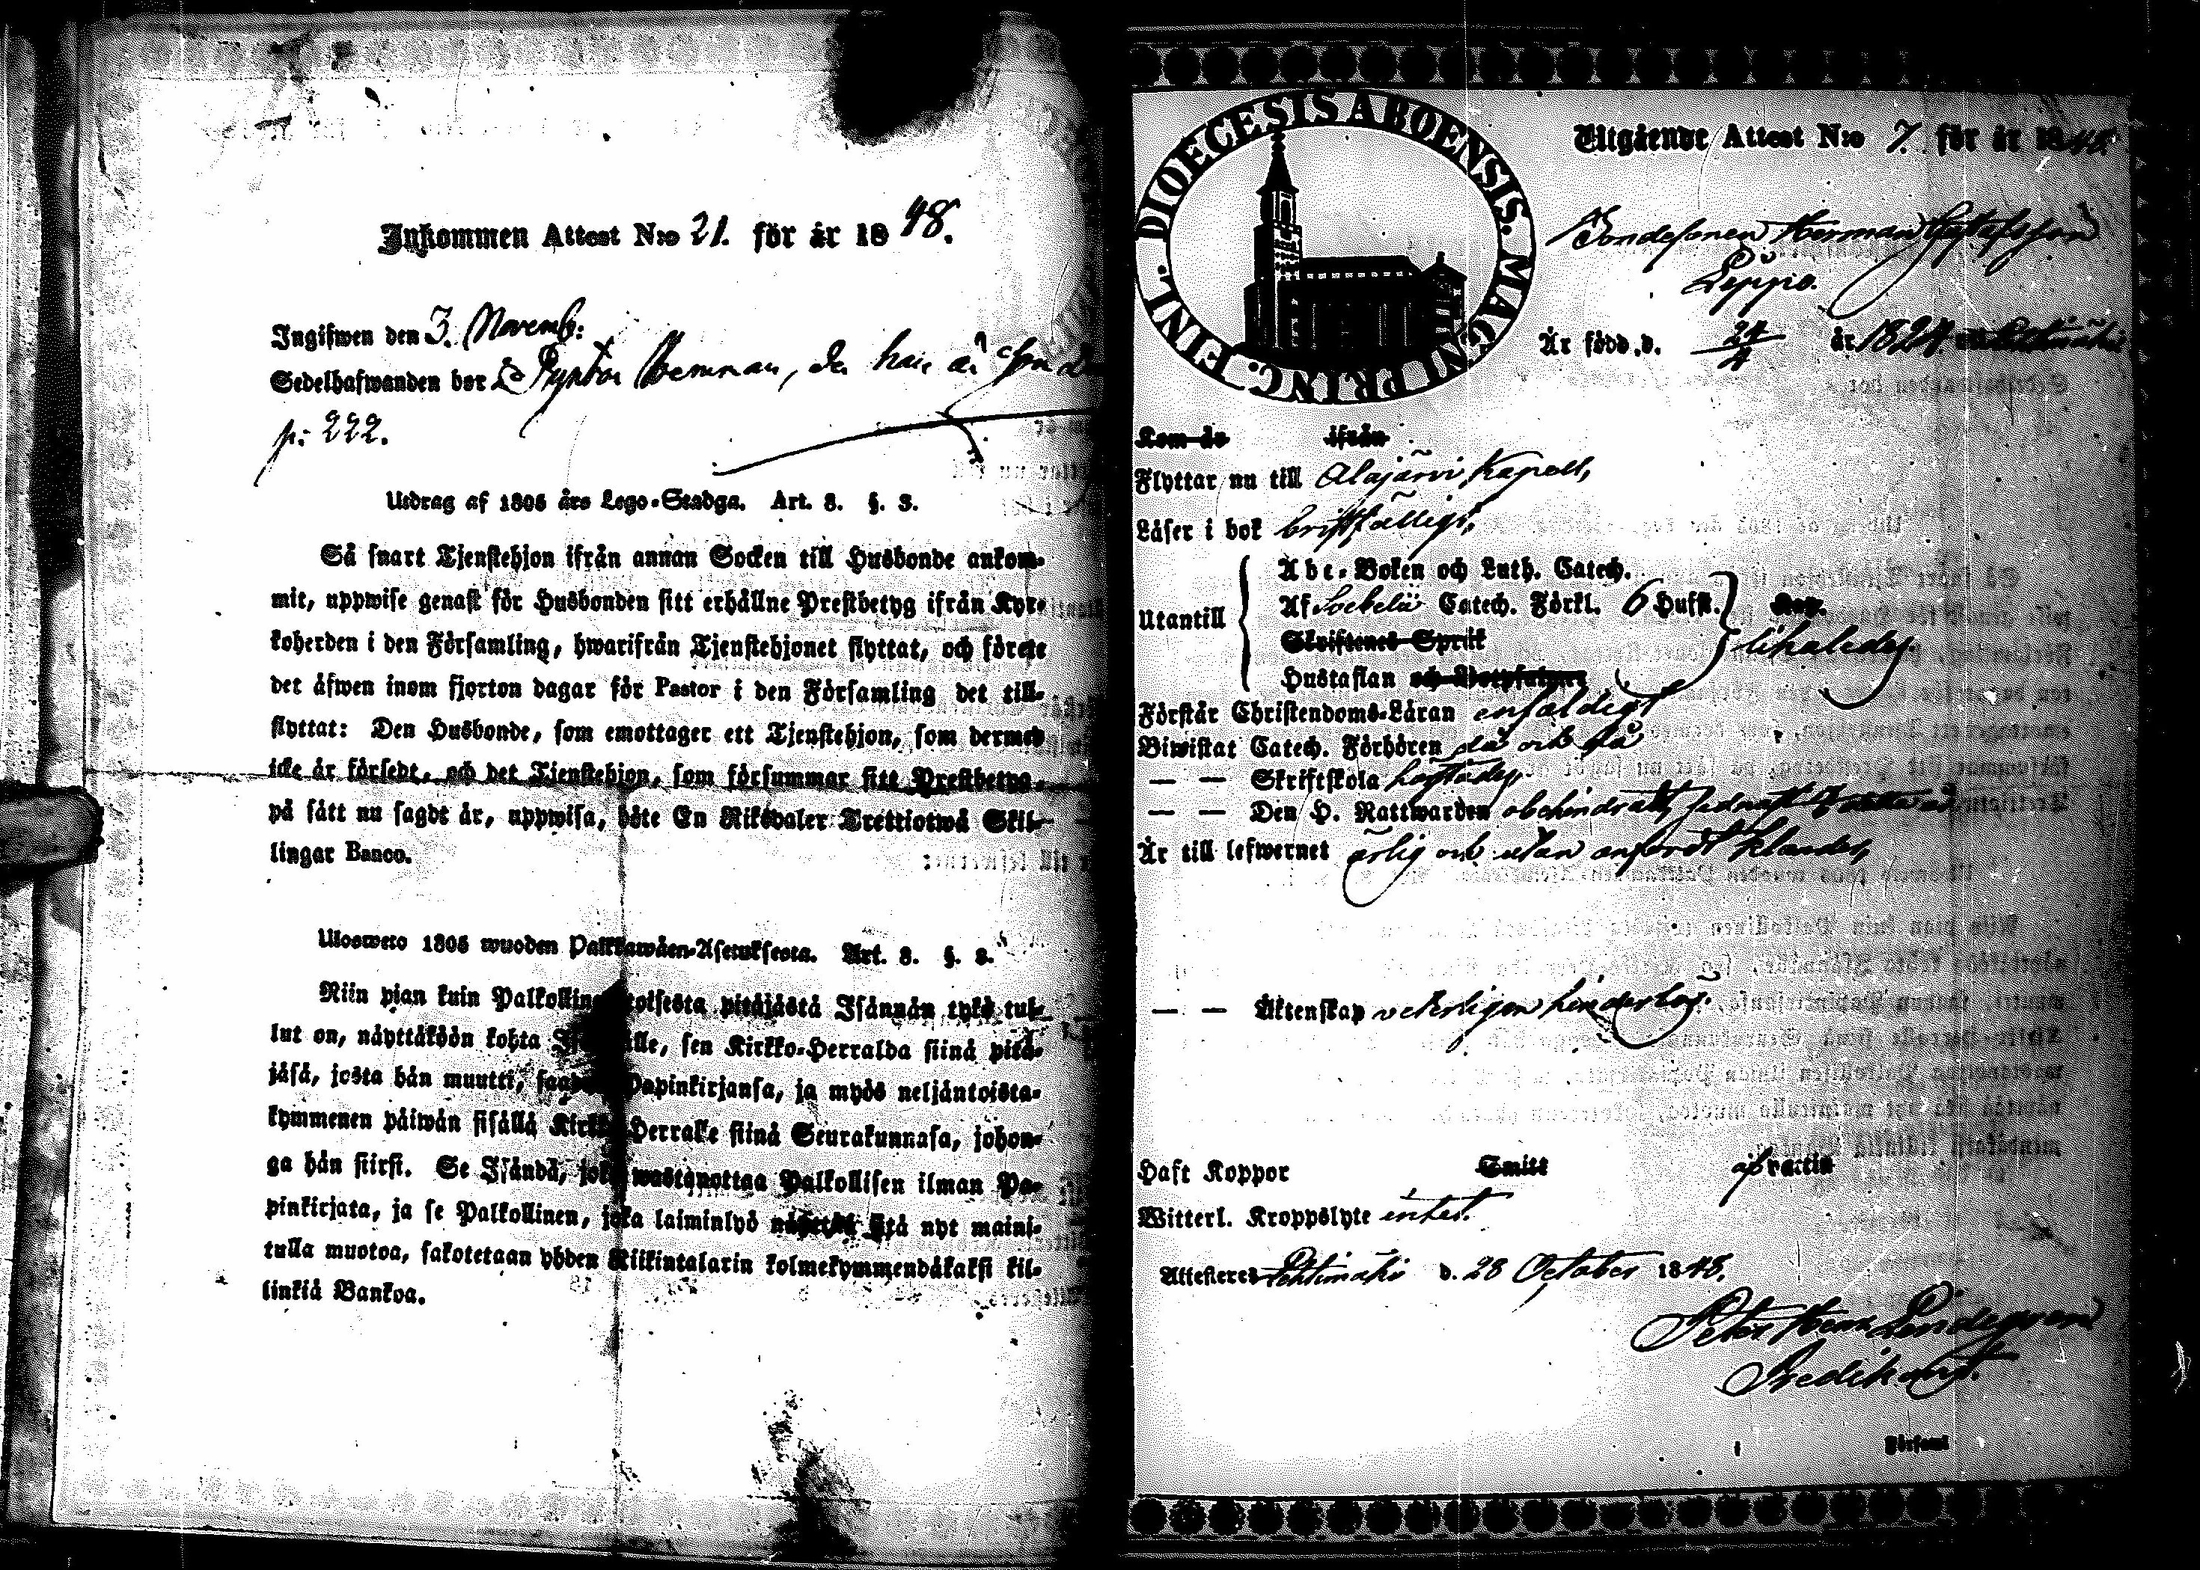 Inkommen Attest N:o 21. för år 1848.
Ingifwen den 3. Novemb:
Sedelhafwanden bor på hemman, der han är
p: 222.
Utdrag af 1805 års Lego-Stadga. Art. 8. §. 3.
Så snart Tjenstehjon ifrån annan Socken till Husbonde ankom-
mit, uppwise genast för Husbonden sitt erhållne Prestbetyg ifrån Kyr-
koherden i den Församling, hwarifrån Tjenstehjonet flyttat, och förete
det äfwen inom fjorton dagar för Pastor i den Församling det till-
flyttat: Den Husbonde, som emottager ett Tjenstehjon, som dermed
icke är försedt, och det Tjenstehjon, som försummar sitt Prestbetyg,
på sätt nu sagdt är, uppwisa, böte En Riksdaler Trettiotwå Skil-
lingar Banco.
Ulosweto 1805 wuoden Palkkawäen-Asetuksesta. Art. 8. §. 3.
Niin pian kuin Palkollinen toisesta pitäjästä Isännän tykö tul-
lut on, näyttäköön kohta Isännälle, sen Kirkko-Herralda siinä pitä-
jäsä, josta hän muutti, saadun Papinkirjansa, ja myös neljäntoista-
kymmenen päiwän sisällä Kirkko-Herralle siinä Seurakunnasa, johon-
ga hän siirsi. Se Isändä, joka wastanottaa Palkollisen ilman Pa-
pinkirjata, ja se Palkollinen, joka laiminlyö sitä nyt maini-
tulla muotoa, sakotetaan yhden Riikintalarin kolmekymmendäkaksi kil-
linkiä Bankoa.
DIOECESIS ABOENSIS. MAGNI PRINC. FINL.
Utgående Attest N:o 7. för år 1848.
Bondesonen Herman Gustafsson
Leppo.
Är född d. 24/4 år 1827.
Kom år ifrån
Flyttar nu till Alajärvi Kapell,
Läser i bok bristfälligt,
Utantill
Abc-Boken och Luth. Catech.
Af Catech. Förkl. 6 Hufst.
Skriftenes Språk
Hustaflan
likaledes.
Förstår Christendoms-Läran enfaldigt
Biwistat Catech. Förhören då och då
— — Skriftskola
— — Den H. Nattwarden obehindradt,
Är till lefwernet ärlig och utan anfördt klander,
— — Äktenskap veterligen hinderlös.
Haft Koppor Smitt
Witterl. Kroppslyte intet.
Attesteres d. 28 October 1848.
Peter Herm Lindegren
Predikant.
Församl